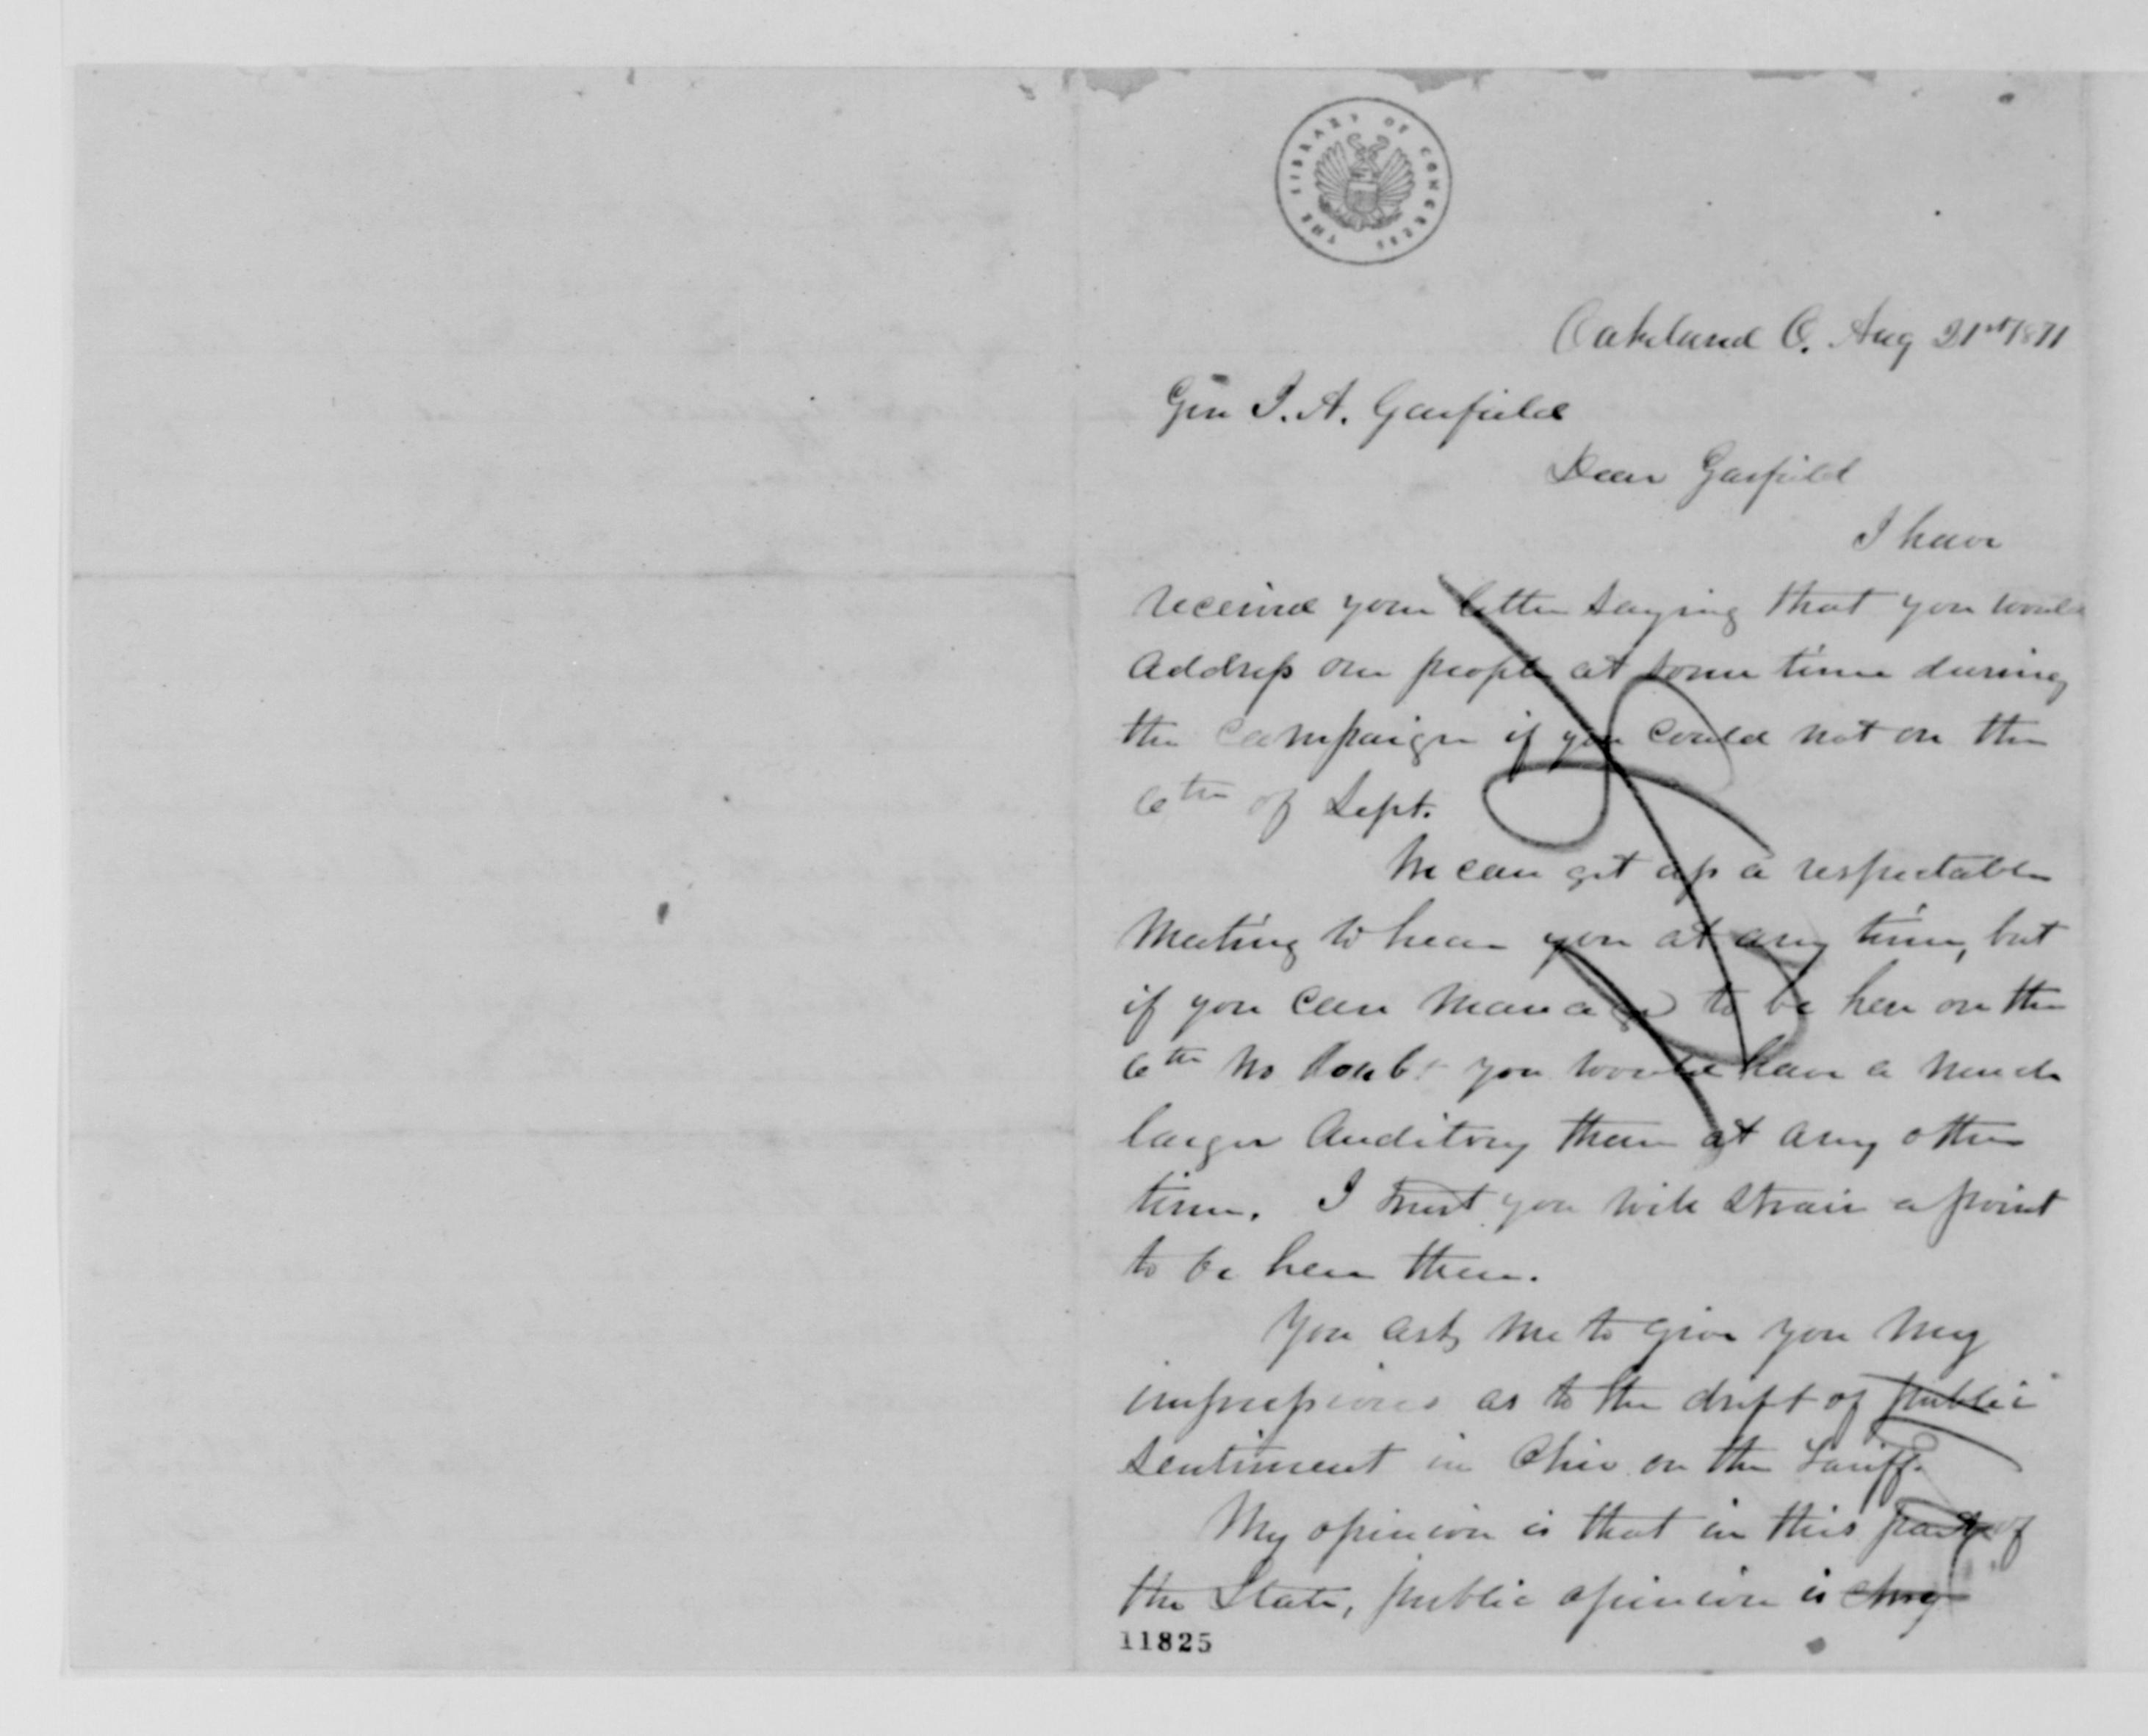 THE LIBRARY OF CONGRESS
Oakeland O. Aug 21st 1871
Gen J. A. Garfield
Dear Garfield
I have
received your letter saying that you would
Address our people at some time during
the Campaign if you could not on the
6th of Sept.
We can get up a respectable
Meeting to hear you at any time, but
if you can manage to be here on the
6th no doubt you would have a much
larger Auditory than at any other
time. I trust you will strain a point
to be here then.
You ask me to give you my
impressions as to the drift of public
sentiment in Ohio on the Tariff.
My opinion is that in this part of
the State, public opinion is chng
11825